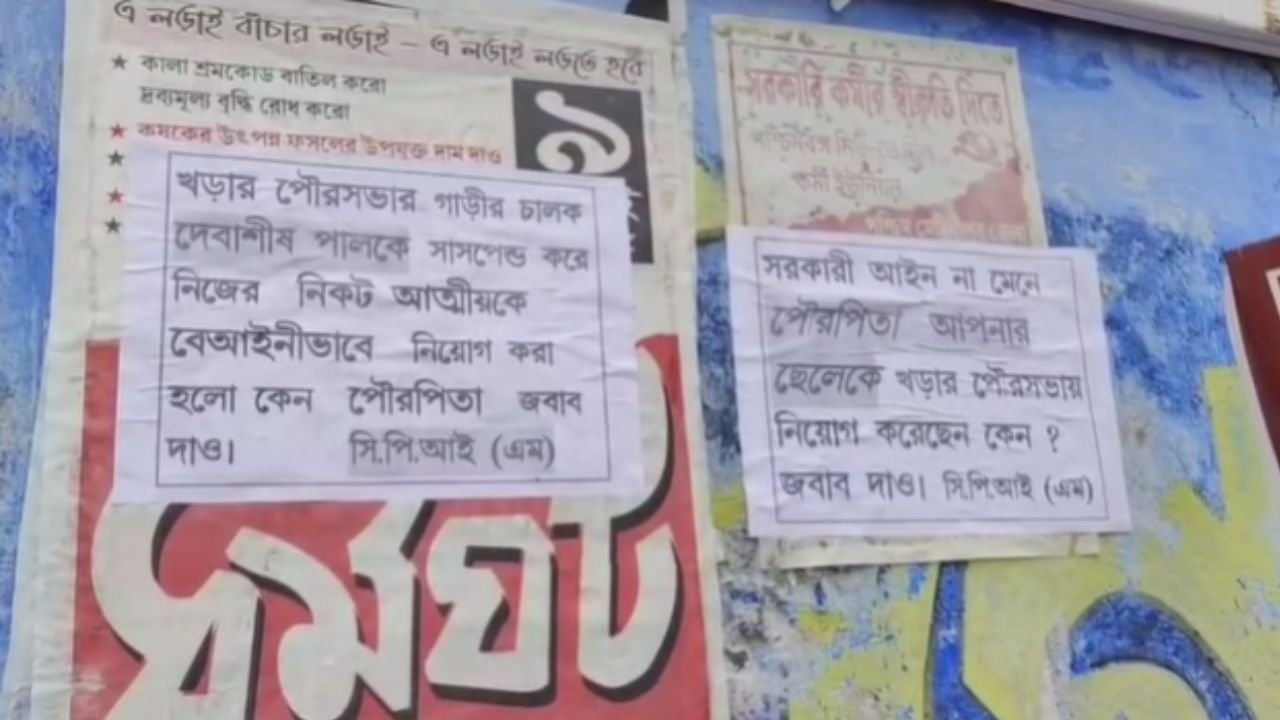 এ লড়াই বাঁচার লড়াই – এ লড়াই লড়তে হবে
★ কালা শ্রমকোড বাতিল করো
দ্রব্যমূল্য বৃদ্ধি রোধ করো
★ কৃষকের উৎপন্ন ফসলের উপযুক্ত দাম দাও
৯
খড়ার পৌরসভার গাড়ীর চালক
দেবাশীষ পালকে সাসপেন্ড করে
নিজের নিকট আত্মীয়কে
বেআইনীভাবে নিয়োগ করা
হলো কেন পৌরপিতা জবাব
দাও। সি.পি.আই (এম)
ধর্মঘট
সরকারি কর্মীর স্বীকৃতি দিতে
কর্মী ইউনিয়ন
সরকারী আইন না মেনে
পৌরপিতা আপনার
ছেলেকে খড়ার পৌরসভায়
নিয়োগ করেছেন কেন ?
জবাব দাও। সি.পি.আই (এম)